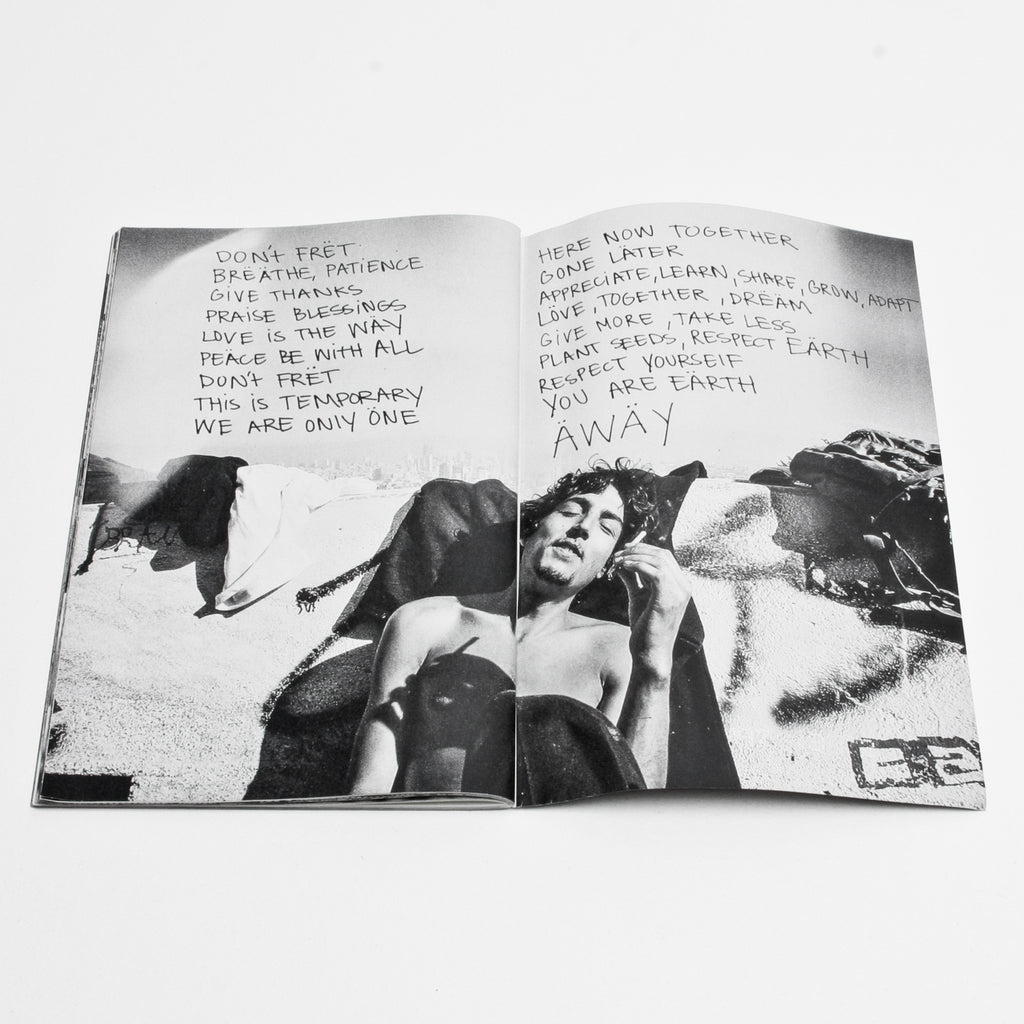 DON'T FRËT
BRËÄTHE, PATIENCE
GIVE THANKS
PRAISE BLESSINGS
LOVE IS THE WÄY
PEÄCE BE WITH ALL
DON'T FRËT
THIS IS TEMPORARY
WE ARE ONLY ÖNE
HERE NOW TOGETHER
GONE LÄTER
APPRECIATE, LEARN, SHARE, GROW, ADAPT
LÖVE, TOGETHER, DRËÄM
GIVE MORE, TAKE LESS
PLANT SEEDS, RESPECT EÄRTH
RESPECT YOURSELF
YOU ARE EÄRTH
ÄWÄY